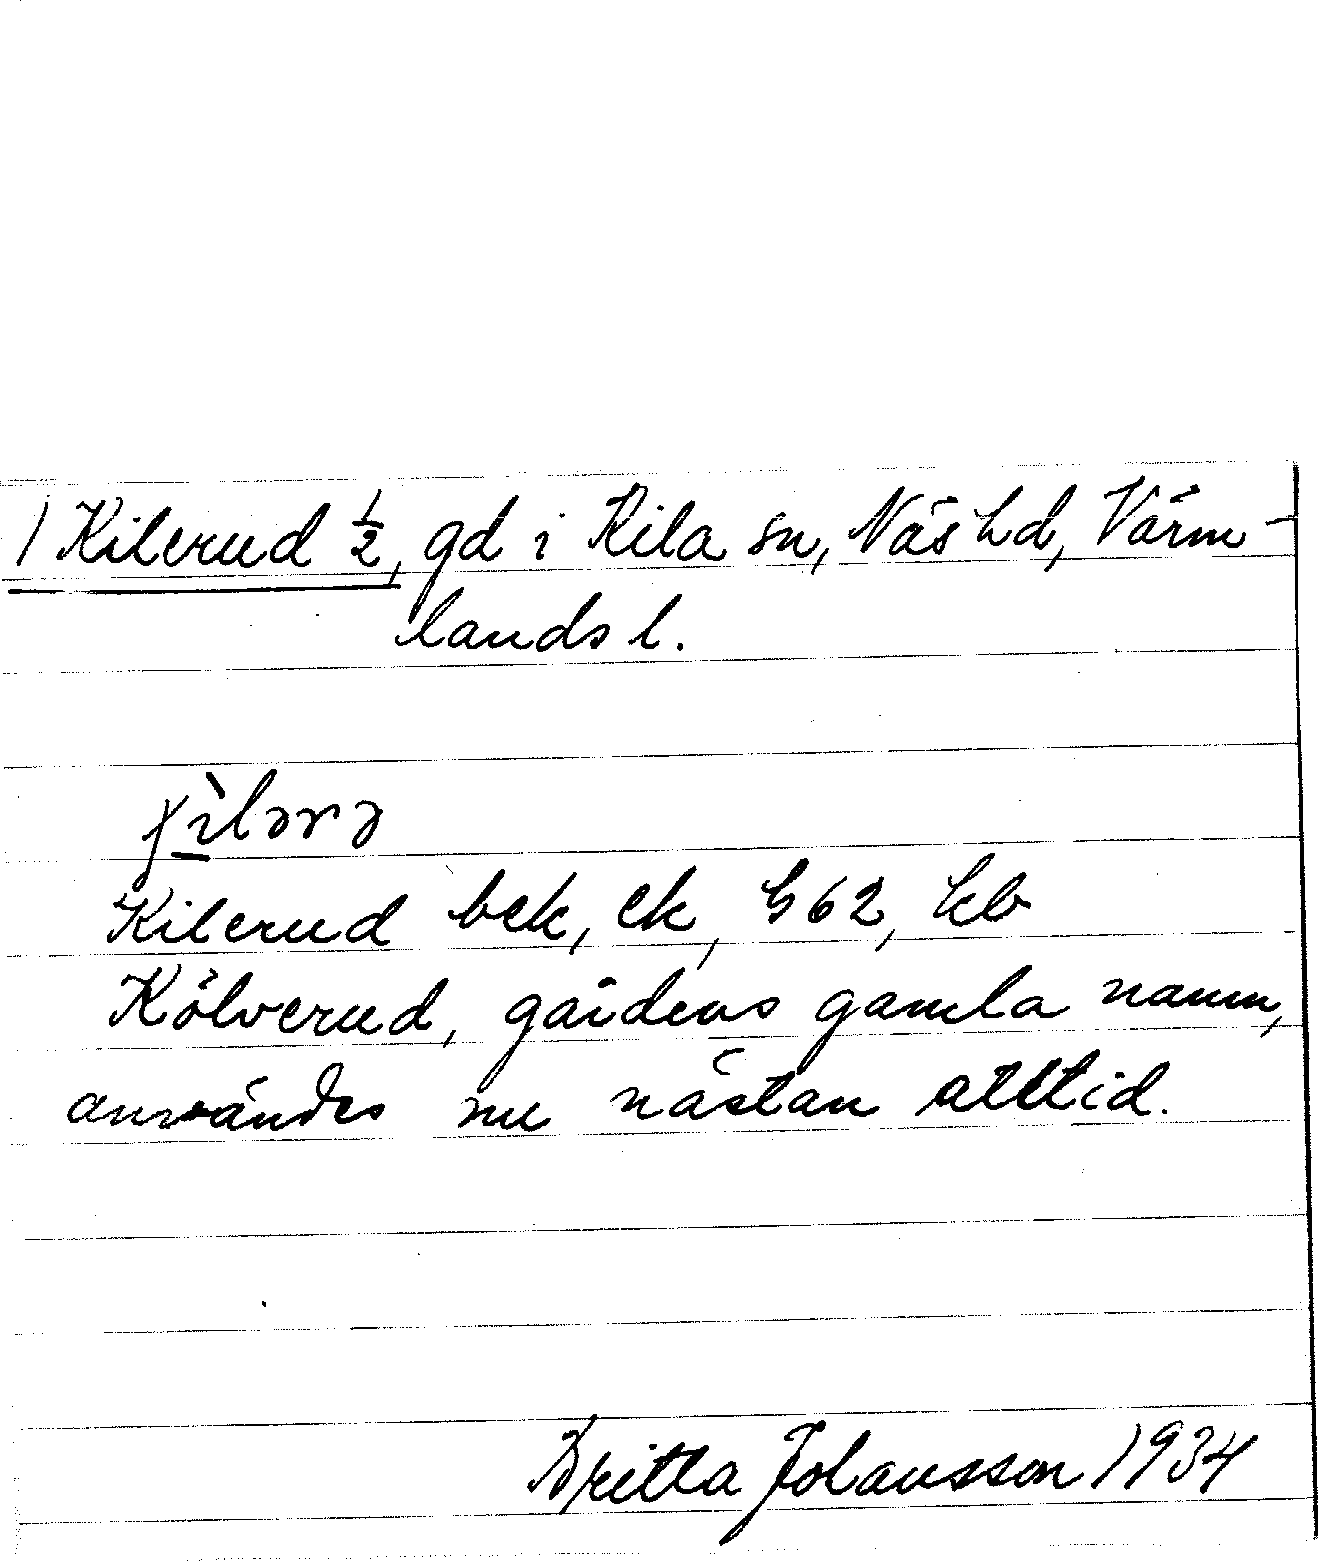 1 Kilerud ½, gd i Kila sn, Näs hd, Värm-
lands l.
Kilerud bek, ek, G 62, kb
Kölverud, gårdens gamla namn,
användes nu nästan alltid.
Britta Johansson 1934